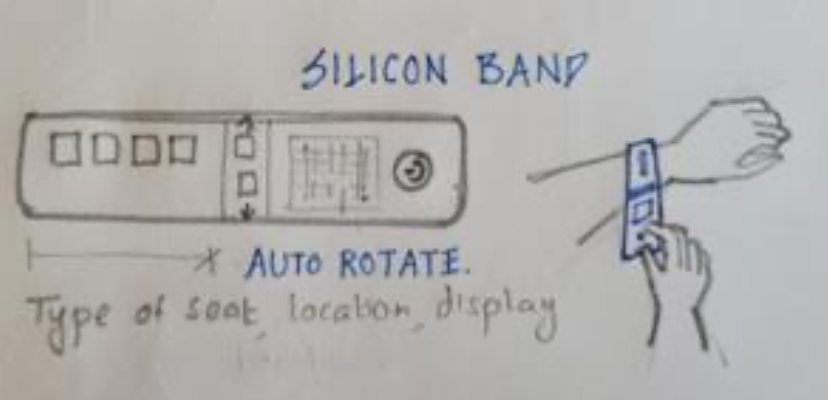 SILICON BAND
AUTO ROTATE.
Type of seat, location, display